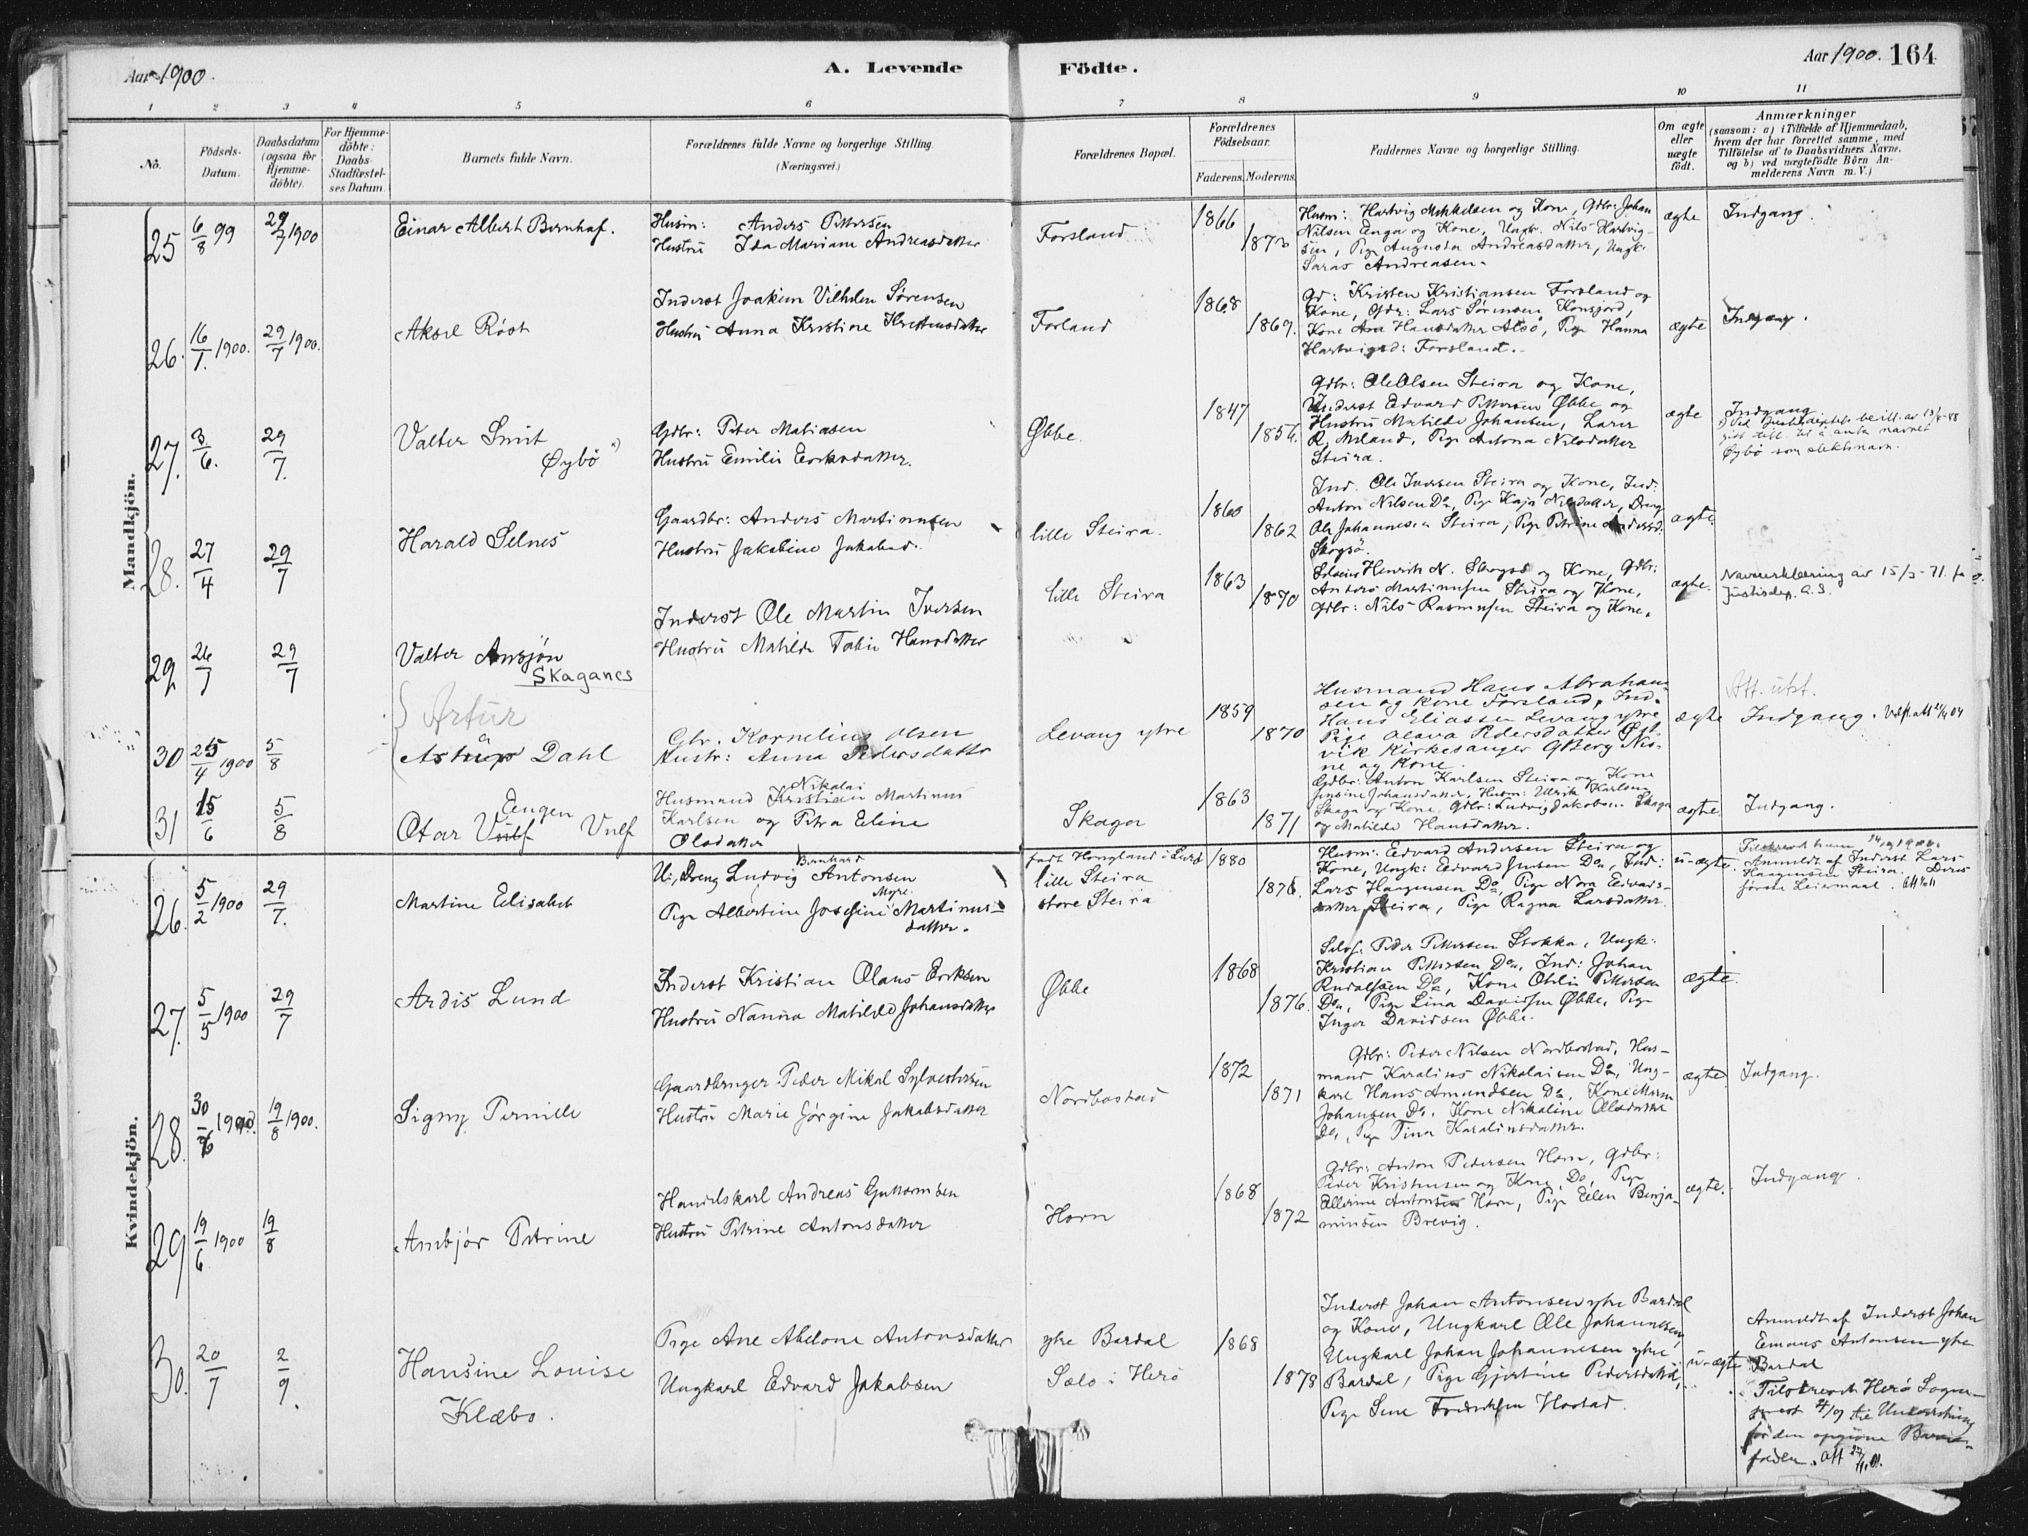 Aar 1900.
A. Levende
Födte.
Aar 1900. 164
1 2 3 4 5 6 7 8 9 10 11
No.
Födsels-
Datum.
Daabsdatum
(ogsaa for
Hjemme-
döbte).
For Hjemme-
döbte:
Daabs-
Stadfæstel-
ses Datum.
Barnets fulde Navn.
Forældrenes fulde Navne og borgerlige Stilling.
(Næringsvei.)
Forældrenes Bopæl.
Forældrenes
Födselsaar.
Faderens. Moderens.
Faddernes Navne og borgerlige Stilling.
Om ægte
eller
uægte
födt.
Anmærkninger
(saasom: a) i Tilfælde af Hjemmedaab,
hvem der har forrettet samme, med
Tilföielse af to Daabsvidners Navne,
og b) ved uægtefödte Börn An-
melderens Navn m. V.)
Mandkjön.
25
6/8 99
29/7 1900
Einar Albert Bernhof.
Husm: Anders Pettersen
Hustru Ida Mariane Andreasdatter
Forsland
1866
1873
Husm: Hartvig Mikkelsen og Kone, Gdbr: Johan
Nilsen Enga og Kone, Ungk. Nils Hartvig-
sen, Pige Augusta Andreasdatter, Ungk:
Andreasen.
ægte
Indgang.
26.
16/1. 1900.
29/7 1900.
Aksel Röst
Inderst Joakim Vilhelm Sörensen
Hustru Anna Kristine Kristensdatter
Forland
1868
1869.
Gd: Kristen Kristiansen Forsland og
Kone, Gdbr: Lars Sörensen,
Kone Ane Hansdatter Alsö, Pige Hanna
Hartvigsd: Forsland.
ægte
Indgang.
27.
3/6.
29/7.
Valter Smit
Øybö
Gdbr: Peter Matiasen
Hustru Emilie Eriksdatter.
Øbbe.
1847
1854.
Gdbr: Ole Olsen Steira og Kone,
Inderst Edvard Pettersen Øbbe og
Hustru Matilde Johansen, Lærer
R. Pige Antona Nilsdatter
Steira.
ægte
Indgang
til å anta navnet
Øybö som slektsnavn.
28.
27/4
29/7
Harald Selnes
Gaardbr: Anders Martinusen
Hustru Jakobine Jakobsd.
lille Steira.
1860
1862
Ind. Ole Iversen Steira og Kone, Ind:
Anton Nilsen Do, Pige Kaja Nilsdatter, Dreng
Ole Johannesen Steira, Pige Petrine Andersd.
Skogsö.
ægte.
29
26/7
29/7
Valter Ansjön
Skaganes
Inderst Ole Martin Iversen
Hustru Matilde Hansdatter
lille Steira
1863
1870
Henrik N. og Kone, Gdbr:
Anders Martinusen Steira og Kone,
Gdbr: Nils Rasmusen Steira og Kone.
ægte.
Navneerklæring av 15/3-71. fra
Justisdep.
30
25/4 1900
5/8
Artur
Dahl
Gbr. Kornelius Olsen
Hustr: Anna Pedersdatter
Levang ytre
1859
1870
Husmand Hans Abraham
sen og kone Forsland, Ind.
Hans Eliassen Levang ytre
Pige Olava Pedersdatter Øst-
vik Kirkesanger Nes-
ne og kone.
ægte
Att. utst.
Indgang.
31
15/6
5/8
Eugen
Otar Vulf Vulf
Nikolai
Husmand Kristian Martinus
Karlsen og Petra Eline
Olsdatter
Skaga
1863
1871
Gdbr: Anton Karlsen Steira og Kone
Johansdatter, Husm: Ulrik Karlsen
Skaga og Kone, Gdbr: Ludvig Jakobsen Skaga
og Matilde Hansdatter.
ægte.
Indgang.
Kvindekjön.
26.
5/2 1900
29/7.
Martine Elisabet
Bernhard
Dreng Ludvig Antonsen
Pige Albertine Josefine Martinus-
datter.
født Hongland i Lurö
lille Steira
store Steira
1880
1878.
Husm: Edvard Andersen Steira og
Kone, Ungk: Edvard Jensen Do, Ind:
Lars Haagensen Do, Pige Nora Edvards-
datter Steira, Pige Ragna Larsdatter.
u-ægte.
Anmeldt af Inderst Lars
Haagensen Steira. Deres
förste Leiermaal.
27.
5/5 1900
29/7
Ardis Lund
Inderst Kristian Olaus Eriksen
Hustru Nanna Matilde Johansdatter
Øbbe
1868
1876.
Selvf. Peder Pettersen Stokka, Ungk:
Kristian Pettersen Do, Ind: Johan
Rudolfsen Do, Kone Otilie Pettersen
Do, Pige Lina Davidsen Øbbe, Pige
Inger Davidsen Øbbe.
ægte.
28.
30/6 1900.
19/8 1900.
Signy Pernille
Gaardbruger Peder Mikal Sylvestersen
Hustru Marie Jörgine Jakobsdatter
Nordbostad
1872
1871
Gdbr: Peder Nilsen Nordbostad, Hus-
mand Karalius Nikolaisen Do, Ung-
karl Hans Amundsen Do, Kone Maren
Johansen Do, Kone Nikoline Olsdatter
Do, Pige Tina Karaliusdatter.
ægte
Indgang.
29
19/6 1900
19/8
Ambjør Petrine
Handelskarl Andreas Guttormsen
Hustru Petrine Antonsdatter
Horn
1868
1872
Gdbr: Anton Pedersen Horn, Gdbr:
Peder Kristensen og Kone, Do, Pige
Ellerine Antonsen Horn, Pige Ellen Benja-
minsen Brevig.
ægte.
Indgang.
30.
20/7
2/9.
Hansine Lovise
Klæbo.
Pige Ane Abelone Antonsdatter
Ungkarl Edvard Jakobsen
ytre Bardal
Sælö i Herö
1868
1878
Inderst Johan Antonsen ytre Bardal
og Kone, Ungkarl Ole Johannesen,
Ungkarl Johan Johannesen ytre
Bardal, Pige Gjertine Pedersdatter,
Pige Sine Fredriksen Hostad.
u-ægte
Anmeldt af Inderst Johan
Emaus Antonsen ytre
Bardal
Tilskrevet Herö Sogne-
prest til Underretning
for den opgivne Barne-
fader.